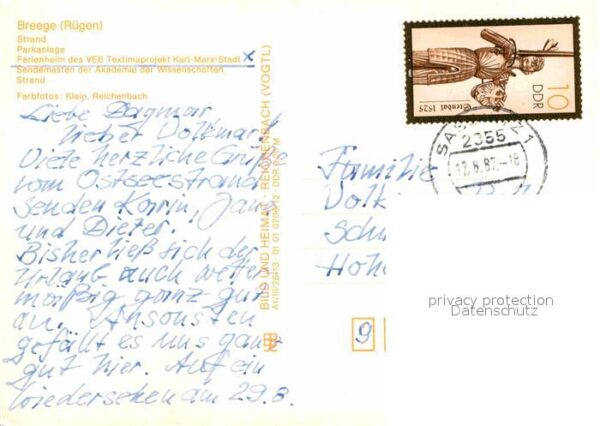 Breege (Rügen)
Strand
Parkanlage
Ferienheim des VEB Textimaprojekt Karl-Marx-Stadt x
Sendemasten der Akademie der Wissenschaften
Strand
Farbfotos: Klein, Reichenbach
Liebe Dagmar
lieber Volkmar!
Viele herzliche Grüße
vom Ostseestrand
senden Karin, Jana
und Dieter.
Bisher ließ sich der
Urlaub auch wetter
mäßig ganz gut
an. Ansonsten
gefällt es uns ganz
gut hier. Auf ein
Wiedersehen am 29.8.
BILD UND HEIMAT REICHENBACH (VOGTL)
Stendal 1525
DDR
10
2355
17.8.87-18
Familie
Volk
Schu
Hohe
9
privacy protection
Datenschutz